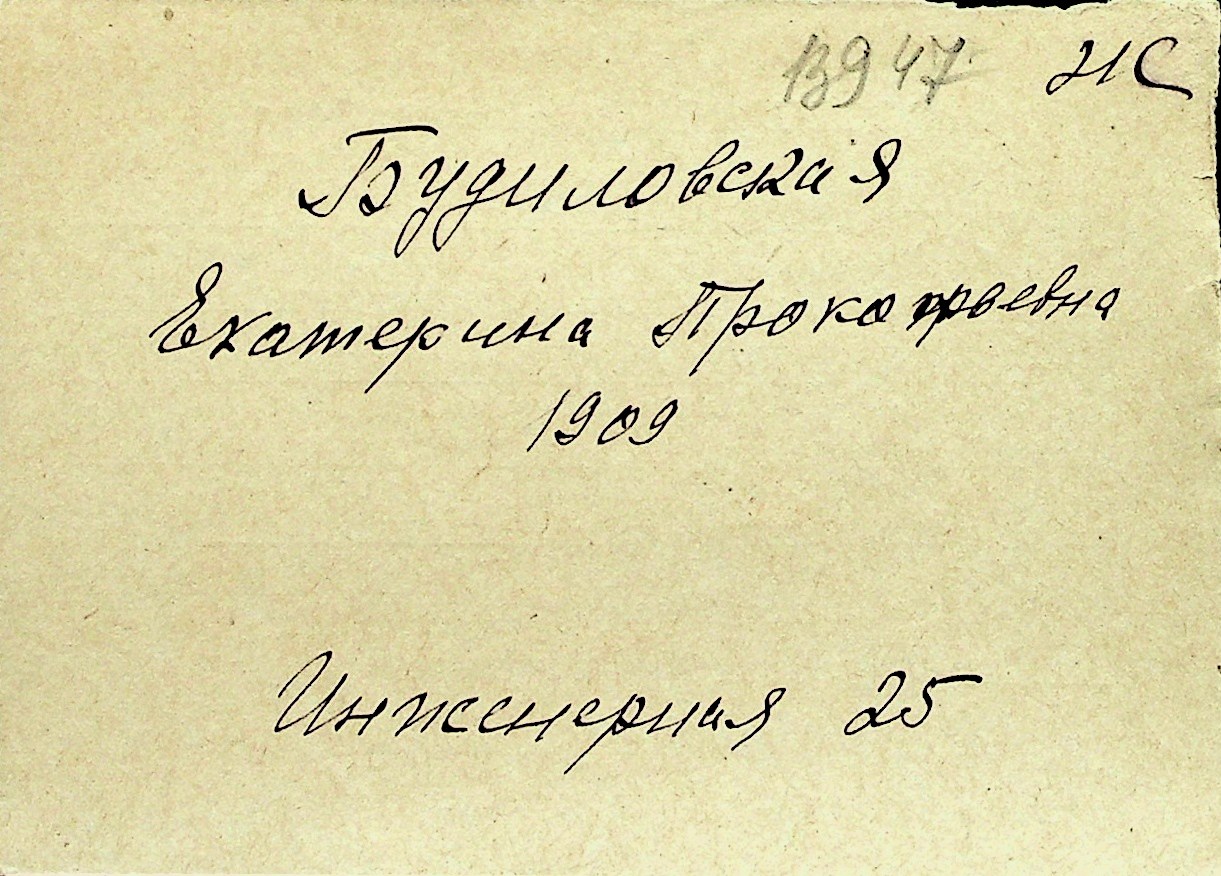 13947 ИС
Будиловская
Екатерина Прокопьевна
1909
Инженерная 25